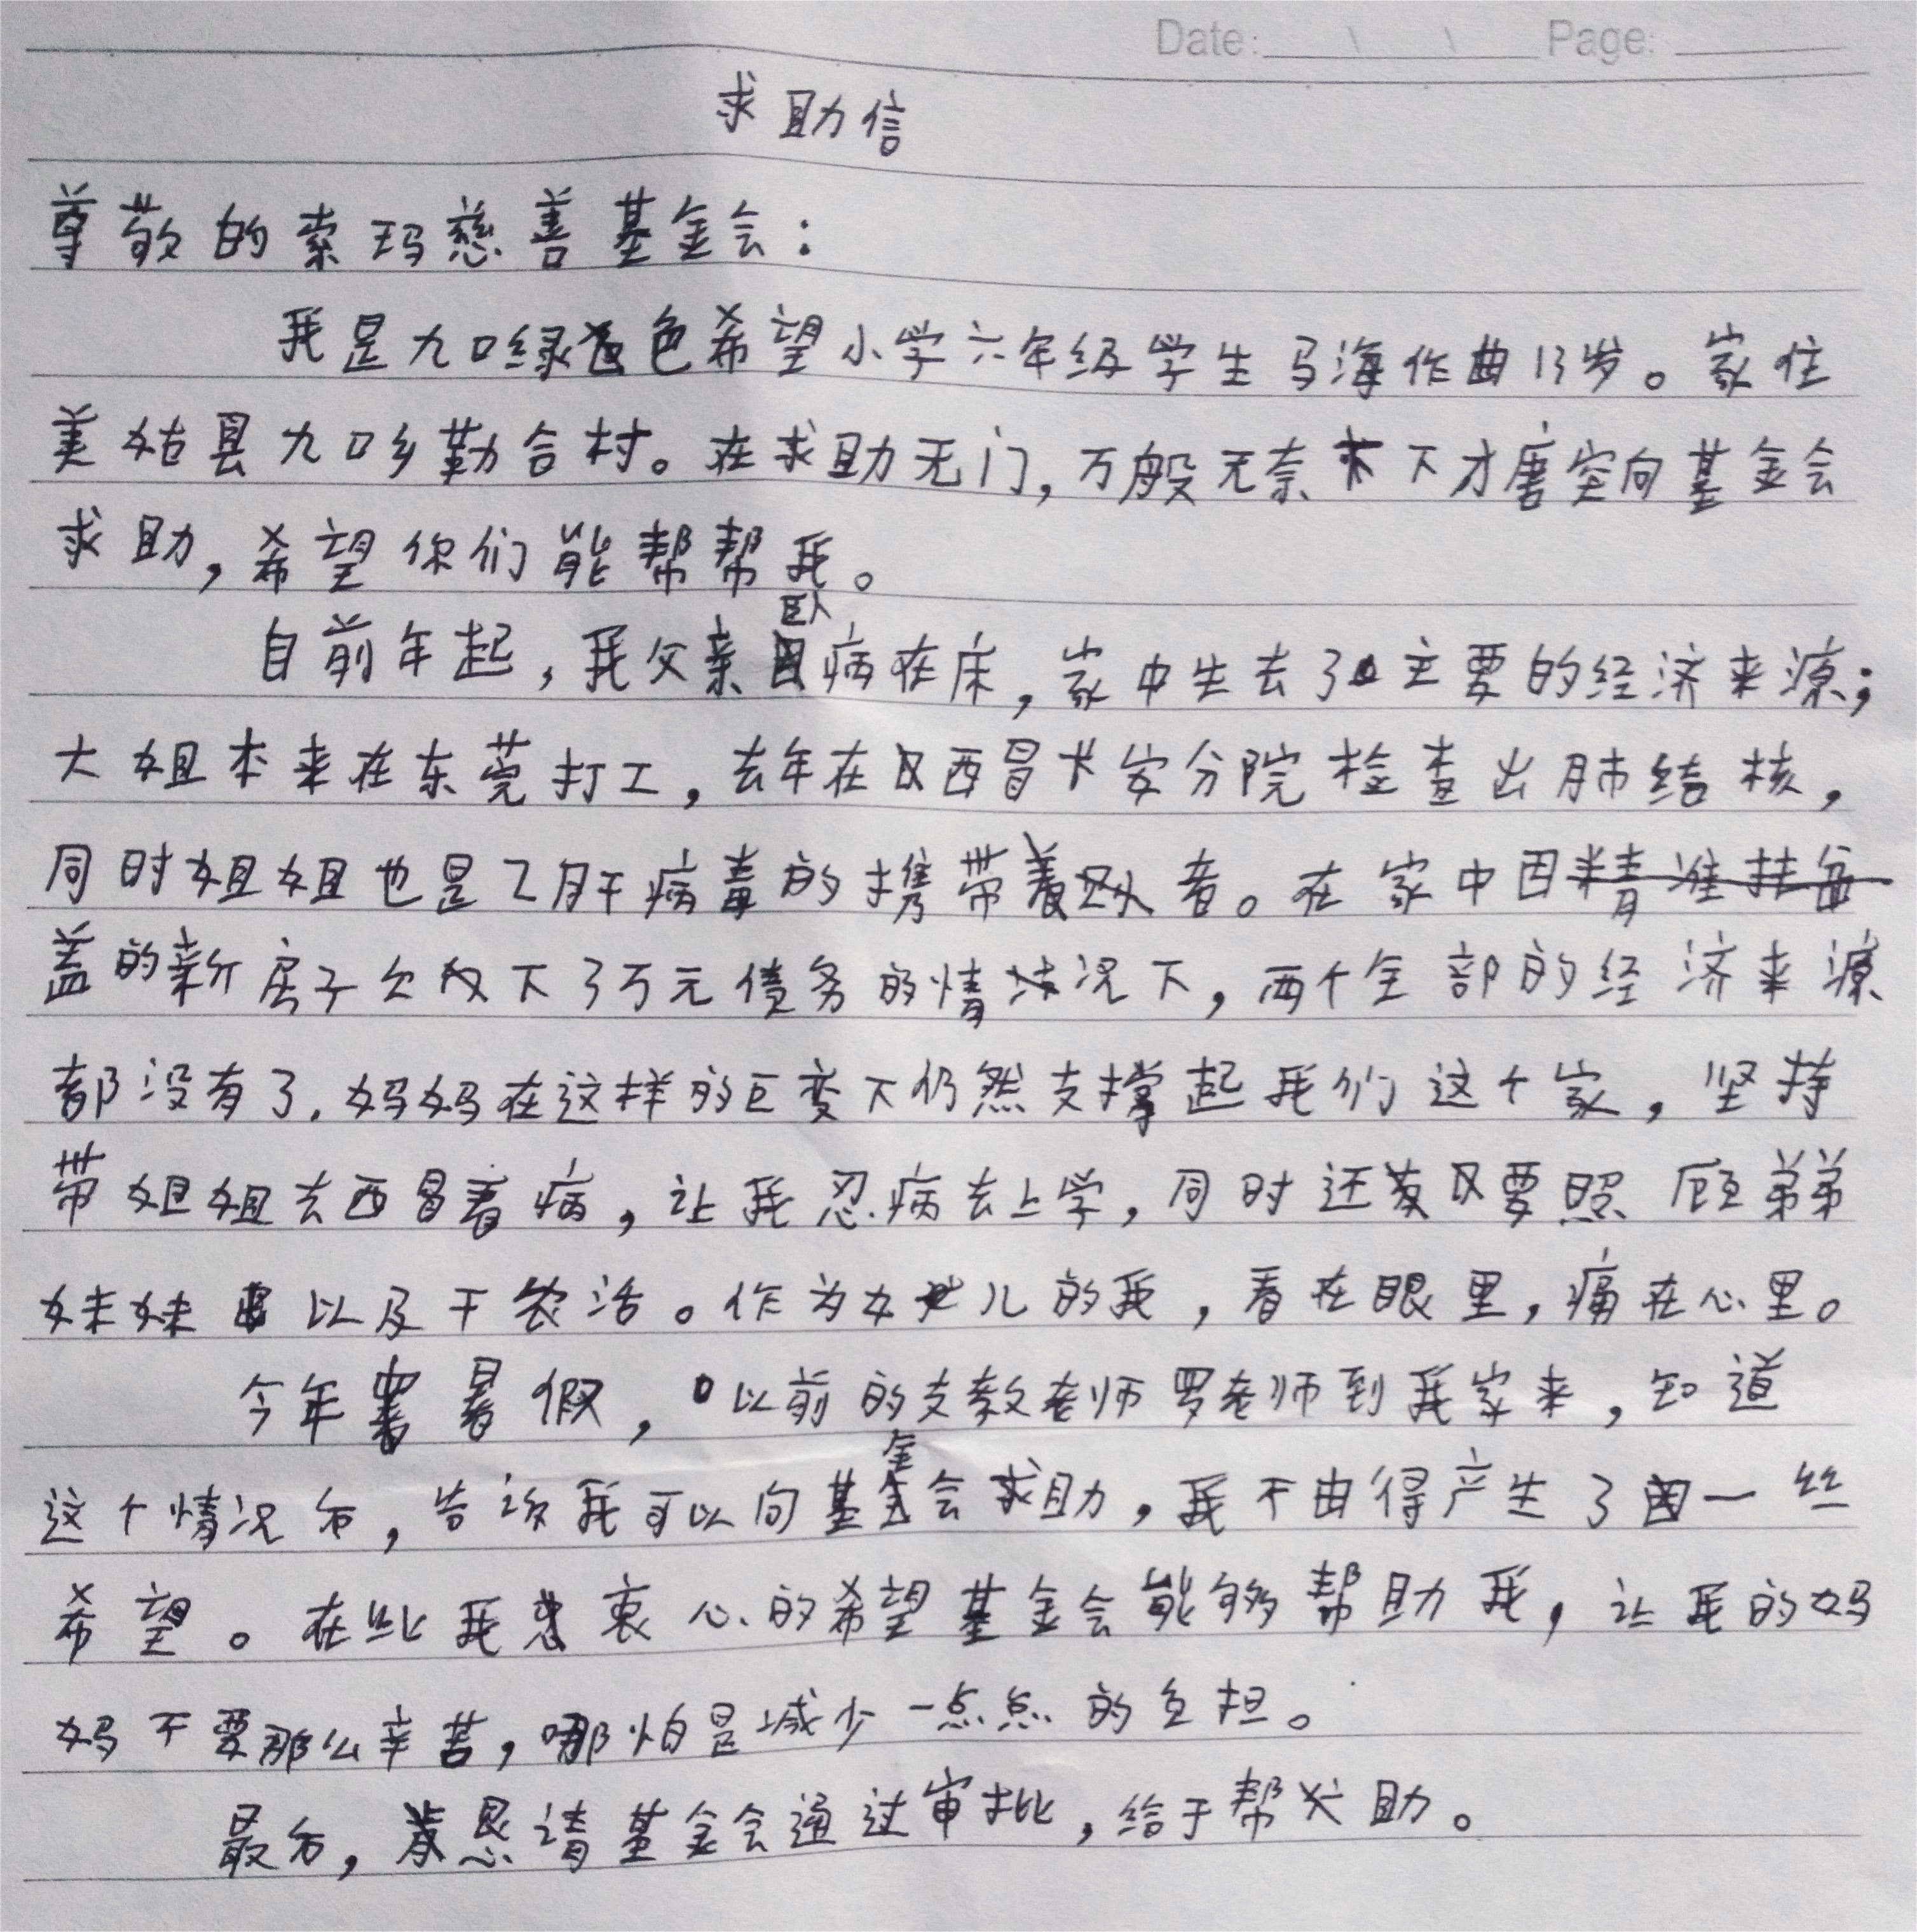 Date: Page:
求助信
尊敬的索玛慈善基金会：
我是九口绿色希望小学六年级学生马海作曲13岁。家住
美姑县九口乡勤合村。在求助无门，万般无奈下才唐突向基金会
求助，希望你们能帮帮我。
自前年起，我父亲卧病在床，家中失去了主要的经济来源；
大姐本来在东莞打工，去年在西昌长安分院检查出肺结核，
同时姐姐也是乙肝病毒的携带者。在家中因精准扶贫
盖的新房子欠下3万元债务的情况下，两个全部的经济来源
都没有了，妈妈在这样的巨变下仍然支撑起我们这个家，坚持
带姐姐去西昌看病，让我忍病去上学，同时还要照顾弟弟
妹妹以及干农活。作为女儿的我，看在眼里，痛在心里。
今年暑假，以前的支教老师罗老师到我家来，知道
这个情况后，告诉我可以向基金会求助，我不由得产生了一丝
希望。在此我衷心的希望基金会能够帮助我，让我的妈
妈不要那么辛苦，哪怕是减少一点点的负担。
最后，恳请基金会通过审批，给于帮助。